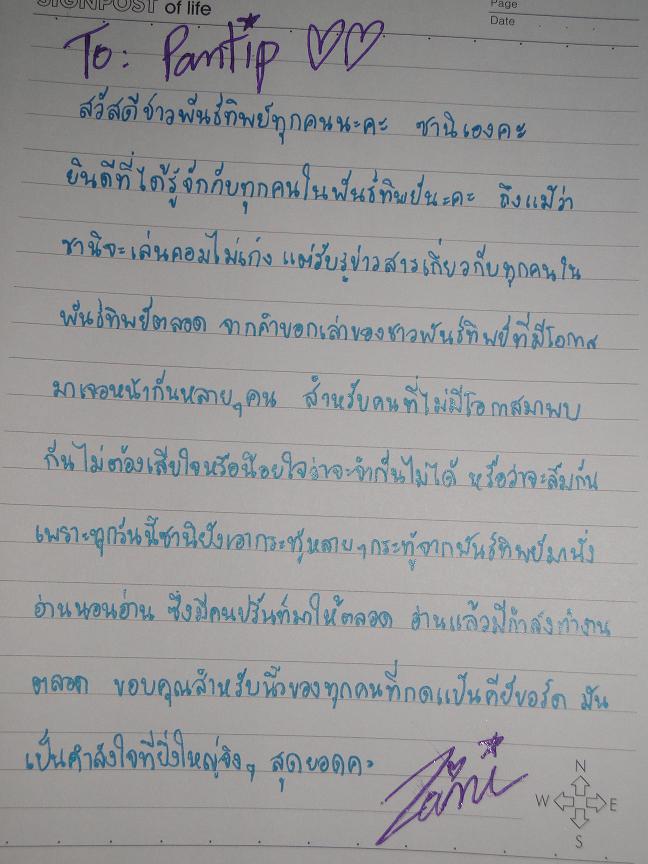 SIGNPOST of life
Page
Date
To: Pantip ♡♡
สวัสดีชาวพันธ์ทิพย์ทุกคนนะคะ ซานิเองคะ
ยินดีที่ได้รู้จักกับทุกคนในพันธ์ทิพย์นะคะ ถึงแม้ว่า
ซานิจะเล่นคอมไม่เก่ง แต่รับรู้ข่าวสารเกี่ยวกับทุกคนใน
พันธ์ทิพย์ตลอด จากคำบอกเล่าของชาวพันธ์ทิพย์ที่มีโอกาส
มาเจอหน้ากันหลายๆคน สำหรับคนที่ไม่มีโอกาสมาพบ
กันไม่ต้องเสียใจหรือน้อยใจว่าจะจำกันไม่ได้ หรือว่าจะลืมกัน
เพราะทุกวันนี้ซานิยังเอากระทู้หลายๆกระทู้จากพันธ์ทิพย์มานั่ง
อ่านนอนอ่าน ซึ่งมีคนปริ้นท์มาให้ตลอด อ่านแล้วมีกำลังทำงาน
ตลอด ขอบคุณสำหรับนิ้วของทุกคนที่กดแป้นคีย์บอร์ด มัน
เป็นกำลังใจที่ยิ่งใหญ่จริงๆ สุดยอดคะ
Zani
N
W E
S